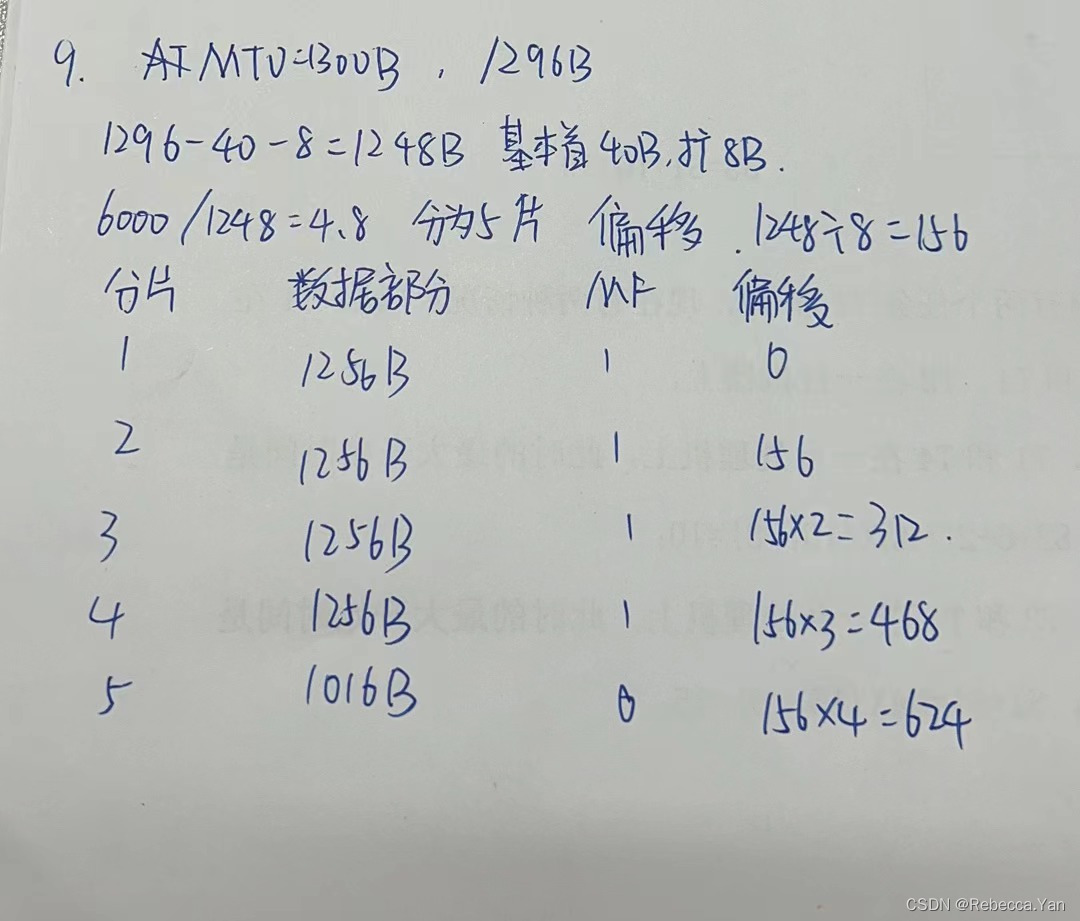 9. 对 MTU=1300B , 1296B
1296-40-8=1248B 基本首40B,扩8B.
6000/1248=4.8 分为5片 偏移.1248÷8=156
分片 数据部分 MF 偏移
1 1256B 1 0
2 1256B 1 156
3 1256B 1 156×2=312.
4 1256B 1 156×3=468
5 1016B 0 156×4=624
CSDN @Rebecca.Yan